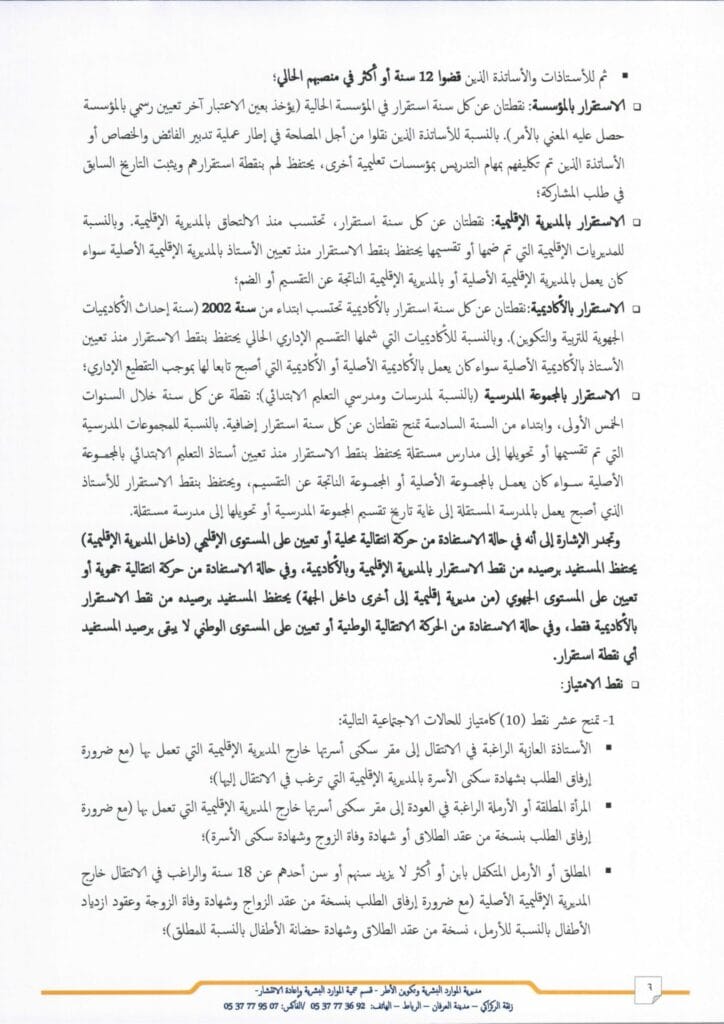 ▪ ثم للأستاذات والأساتذة الذين قضوا 12 سنة أو أكثر في منصبهم الحالي؛
❑ الاستقرار بالمؤسسة: نقطتان عن كل سنة استقرار في المؤسسة الحالية (يؤخذ بعين الاعتبار آخر تعيين رسمي بالمؤسسة
حصل عليه المعني بالأمر). بالنسبة للأساتذة الذين نقلوا من أجل المصلحة في إطار عملية تدبير الفائض والخصاص أو
الأساتذة الذين تم تكليفهم بمهام التدريس بمؤسسات تعليمية أخرى، يحتفظ لهم بنقطة استقرارهم ويثبت التاريخ السابق
في طلب المشاركة؛
❑ الاستقرار بالمديرية الإقليمية: نقطتان عن كل سنة استقرار، تحتسب منذ الالتحاق بالمديرية الإقليمية. وبالنسبة
للمديريات الإقليمية التي تم ضمها أو تقسيمها يحتفظ بنقط الاستقرار منذ تعيين الأستاذ بالمديرية الإقليمية الأصلية سواء
كان يعمل بالمديرية الإقليمية الأصلية أو بالمديرية الإقليمية الناتجة عن التقسيم أو الضم؛
❑ الاستقرار بالأكاديمية:نقطتان عن كل سنة استقرار بالأكاديمية تحتسب ابتداء من سنة 2002 (سنة إحداث الأكاديميات
الجهوية للتربية والتكوين). وبالنسبة للأكاديميات التي شملها التقسيم الإداري الحالي يحتفظ بنقط الاستقرار منذ تعيين
الأستاذ بالأكاديمية الأصلية سواء كان يعمل بالأكاديمية الأصلية أو الأكاديمية التي أصبح تابعا لها بموجب التقطيع الإداري؛
❑ الاستقرار بالمجموعة المدرسية (بالنسبة لمدرسات ومدرسي التعليم الابتدائي): نقطة عن كل سنة خلال السنوات
الخمس الأولى، وابتداء من السنة السادسة تمنح نقطتان عن كل سنة استقرار إضافية. بالنسبة للمجموعات المدرسية
التي تم تقسيمها أو تحويلها إلى مدارس مستقلة يحتفظ بنقط الاستقرار منذ تعيين أستاذ التعليم الابتدائي بالمجموعة
الأصلية سواء كان يعمل بالمجموعة الأصلية أو المجموعة الناتجة عن التقسيم، ويحتفظ بنقط الاستقرار للأستاذ
الذي أصبح يعمل بالمدرسة المستقلة إلى غاية تاريخ تقسيم المجموعة المدرسية أو تحويلها إلى مدرسة مستقلة.
وتجدر الإشارة إلى أنه في حالة الاستفادة من حركة انتقالية محلية أو تعيين على المستوى الإقليمي (داخل المديرية الإقليمية)
يحتفظ المستفيد برصيده من نقط الاستقرار بالمديرية الإقليمية وبالأكاديمية، وفي حالة الاستفادة من حركة انتقالية جهوية أو
تعيين على المستوى الجهوي (من مديرية إقليمية إلى أخرى داخل الجهة) يحتفظ المستفيد برصيده من نقط الاستقرار
بالأكاديمية فقط، وفي حالة الاستفادة من الحركة الانتقالية الوطنية أو تعيين على المستوى الوطني لا يبقى برصيد المستفيد
أي نقطة استقرار.
❑ نقط الامتياز:
1- تمنح عشر نقط (10)كامتياز للحالات الاجتماعية التالية:
▪ الأستاذة العازبة الراغبة في الانتقال إلى مقر سكنى أسرتها خارج المديرية الإقليمية التي تعمل بها (مع ضرورة
إرفاق الطلب بشهادة سكنى الأسرة بالمديرية الإقليمية التي ترغب في الانتقال إليها)؛
▪ المرأة المطلقة أو الأرملة الراغبة في العودة إلى مقر سكنى أسرتها خارج المديرية الإقليمية التي تعمل بها (مع ضرورة
إرفاق الطلب بنسخة من عقد الطلاق أو شهادة وفاة الزوج وشهادة سكنى الأسرة)؛
▪ المطلق أو الأرمل المتكفل بابن أو أكثر لا يزيد سنهم أو سن أحدهم عن 18 سنة والراغب في الانتقال خارج
المديرية الإقليمية الأصلية (مع ضرورة إرفاق الطلب بنسخة من عقد الزواج وشهادة وفاة الزوجة وعقود ازدياد
الأطفال بالنسبة للأرمل، نسخة من عقد الطلاق وشهادة حضانة الأطفال بالنسبة للمطلق)؛
٦
مديرية الموارد البشرية وتكوين الأطر - قسم تنمية الموارد البشرية وإعادة الانتشار-
زنقة الركراكي – مدينة العرفان – الرباط – الهاتف: 92 36 77 37 05 /الفاكس: 07 95 77 37 05